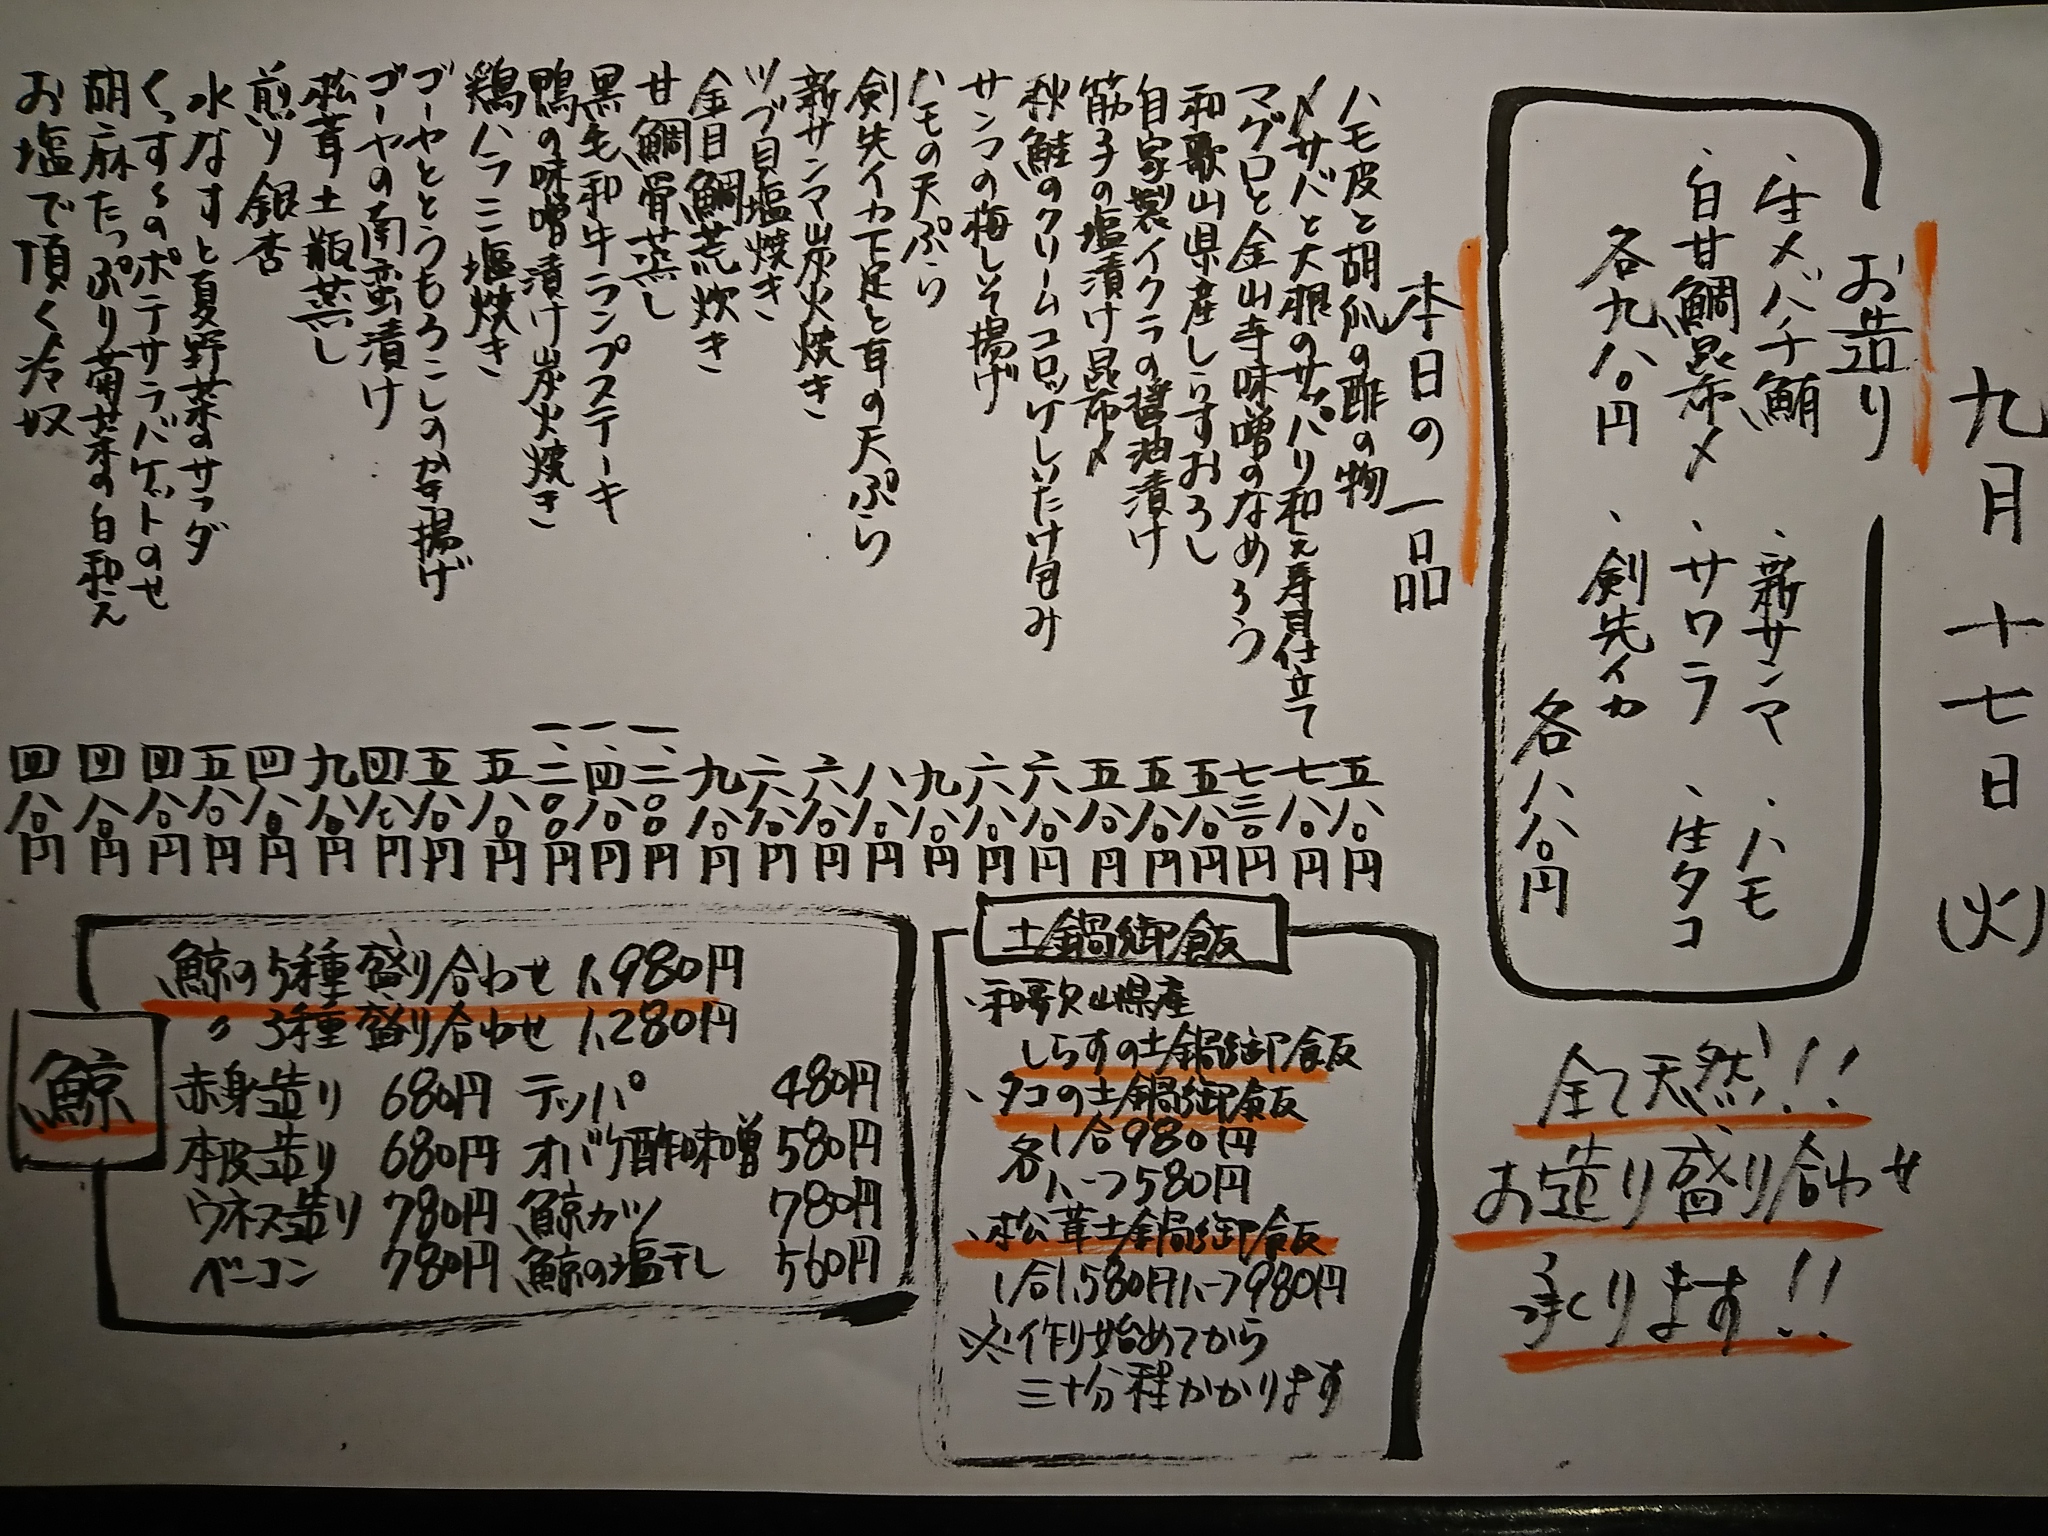 九月十七日(火)
お造り
・生メバチ鮪
・白甘鯛昆布〆
各九八〇円
・新サンマ
・ハモ
・サワラ
・生タコ
・剣先イカ
各八八〇円
全て天然!!
お造り盛り合わせ
承ります!!
本日の一品
ハモ皮と胡瓜の酢の物 五八〇円
〆サバと大根のサッパリ和え寿司仕立て 七八〇円
マグロと金山寺味噌のなめろう 七三〇円
和歌山県産しらすおろし 五八〇円
自家製イクラの醤油漬け 五八〇円
筋子の塩漬け昆布〆 五八〇円
秋鮭のクリームコロッケしいたけ包み 六八〇円
サンマの梅しそ揚げ 六八〇円
ハモの天ぷら 九八〇円
剣先イカ下足と耳の天ぷら 八八〇円
新サンマ炭火焼き 六八〇円
ツブ貝塩焼き 六八〇円
金目鯛荒炊き 九八〇円
甘鯛骨蒸し 一、二〇〇円
黒毛和牛ランプステーキ 一、四八〇円
鴨の味噌漬け炭火焼き 一、二〇〇円
鶏ハラミ塩焼き 五八〇円
ゴーヤととうもろこしのかき揚げ 五八〇円
ゴーヤの南蛮漬け 四八〇円
松茸土瓶蒸し 九八〇円
煎り銀杏 四八〇円
水なすと夏野菜のサラダ 五八〇円
くっすくのポテサラバケットのせ 四八〇円
胡麻たっぷり菊菜の白和え 四八〇円
お塩で頂く冷奴 四八〇円
土鍋御飯
・和歌山県産
しらすの土鍋御飯
・タコの土鍋御飯
各 1合980円
ハーフ580円
・松茸土鍋御飯
1合1,580円ハーフ980円
※作り始めてから
三十分程かかります
鯨
鯨の5種盛り合わせ 1,980円
〃 3種盛り合わせ 1,280円
赤身造り 680円 テッパ 480円
本皮造り 680円 オバケ酢味噌 580円
ウネス造り 780円 鯨カツ 780円
ベーコン 780円 鯨の塩干し 560円